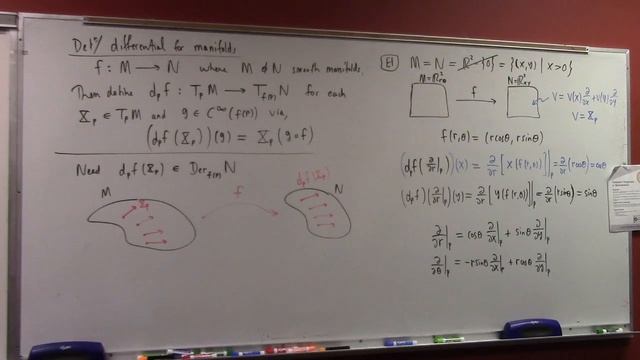 Defⁿ/ differential for manifolds
f : M → N where M & N smooth manifolds.
Then define dₚf : TₚM → T_f(p)N for each
𝕏ₚ ∈ TₚM and g ∈ C^∞(f(p)) via,
(dₚf(𝕏ₚ))(g) = 𝕏ₚ(g∘f)
Need dₚf(𝕏ₚ) ∈ Der_f(p)N
M
𝕏ₚ
f
dₚf(𝕏ₚ)
N
E1 M = N = ℝ² - {0} = {(x,y) | x>0}
f
V = V(x) ∂/∂x + V(y) ∂/∂y
V = 𝕏ₚ
f(r,θ) = (r cosθ, r sinθ)
(dₚf(∂/∂r|ₚ))(x) = ∂/∂r [x(f(r,θ))]|ₚ = ∂/∂r (r cosθ) = cosθ
(dₚf)(∂/∂r|ₚ)(y) = ∂/∂r [y(f(r,θ))]|ₚ = ∂/∂r (r sinθ) = sinθ
∂/∂r|ₚ = cosθ ∂/∂x|ₚ + sinθ ∂/∂y|ₚ
∂/∂θ|ₚ = -r sinθ ∂/∂x|ₚ + r cosθ ∂/∂y|ₚ